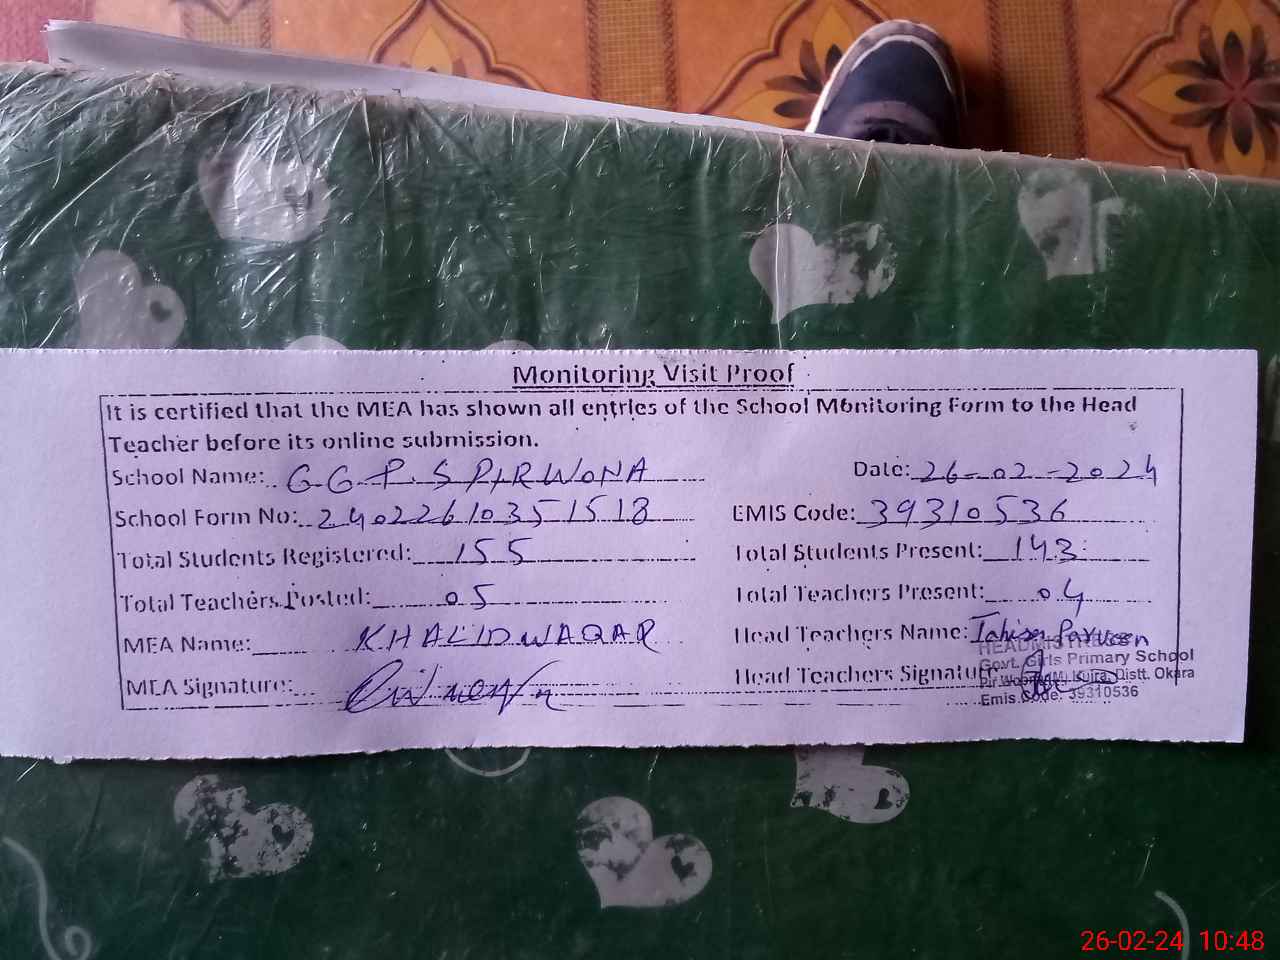 Monitoring Visit Proof
It is certified that the MEA has shown all entries of the School Monitoring Form to the Head
Teacher before its online submission.
School Name: GGP.S PIRWONA Date: 26-02-2024
School Form No: 240226103515 18 EMIS Code: 39310536
Total Students Registered: 155 Total Students Present: 143
Total Teachers Posted: 05 Total Teachers Present: 04
MEA Name: KHALID WAQAR Head Teachers Name: Parveen
HEADMISTRESS
Govt. Girls Primary School
MEA Signature: Head Teachers Signature:
Pir Wona (M) Kujra, Distt. Okara
Emis Code. 39310536
26-02-24 10:48